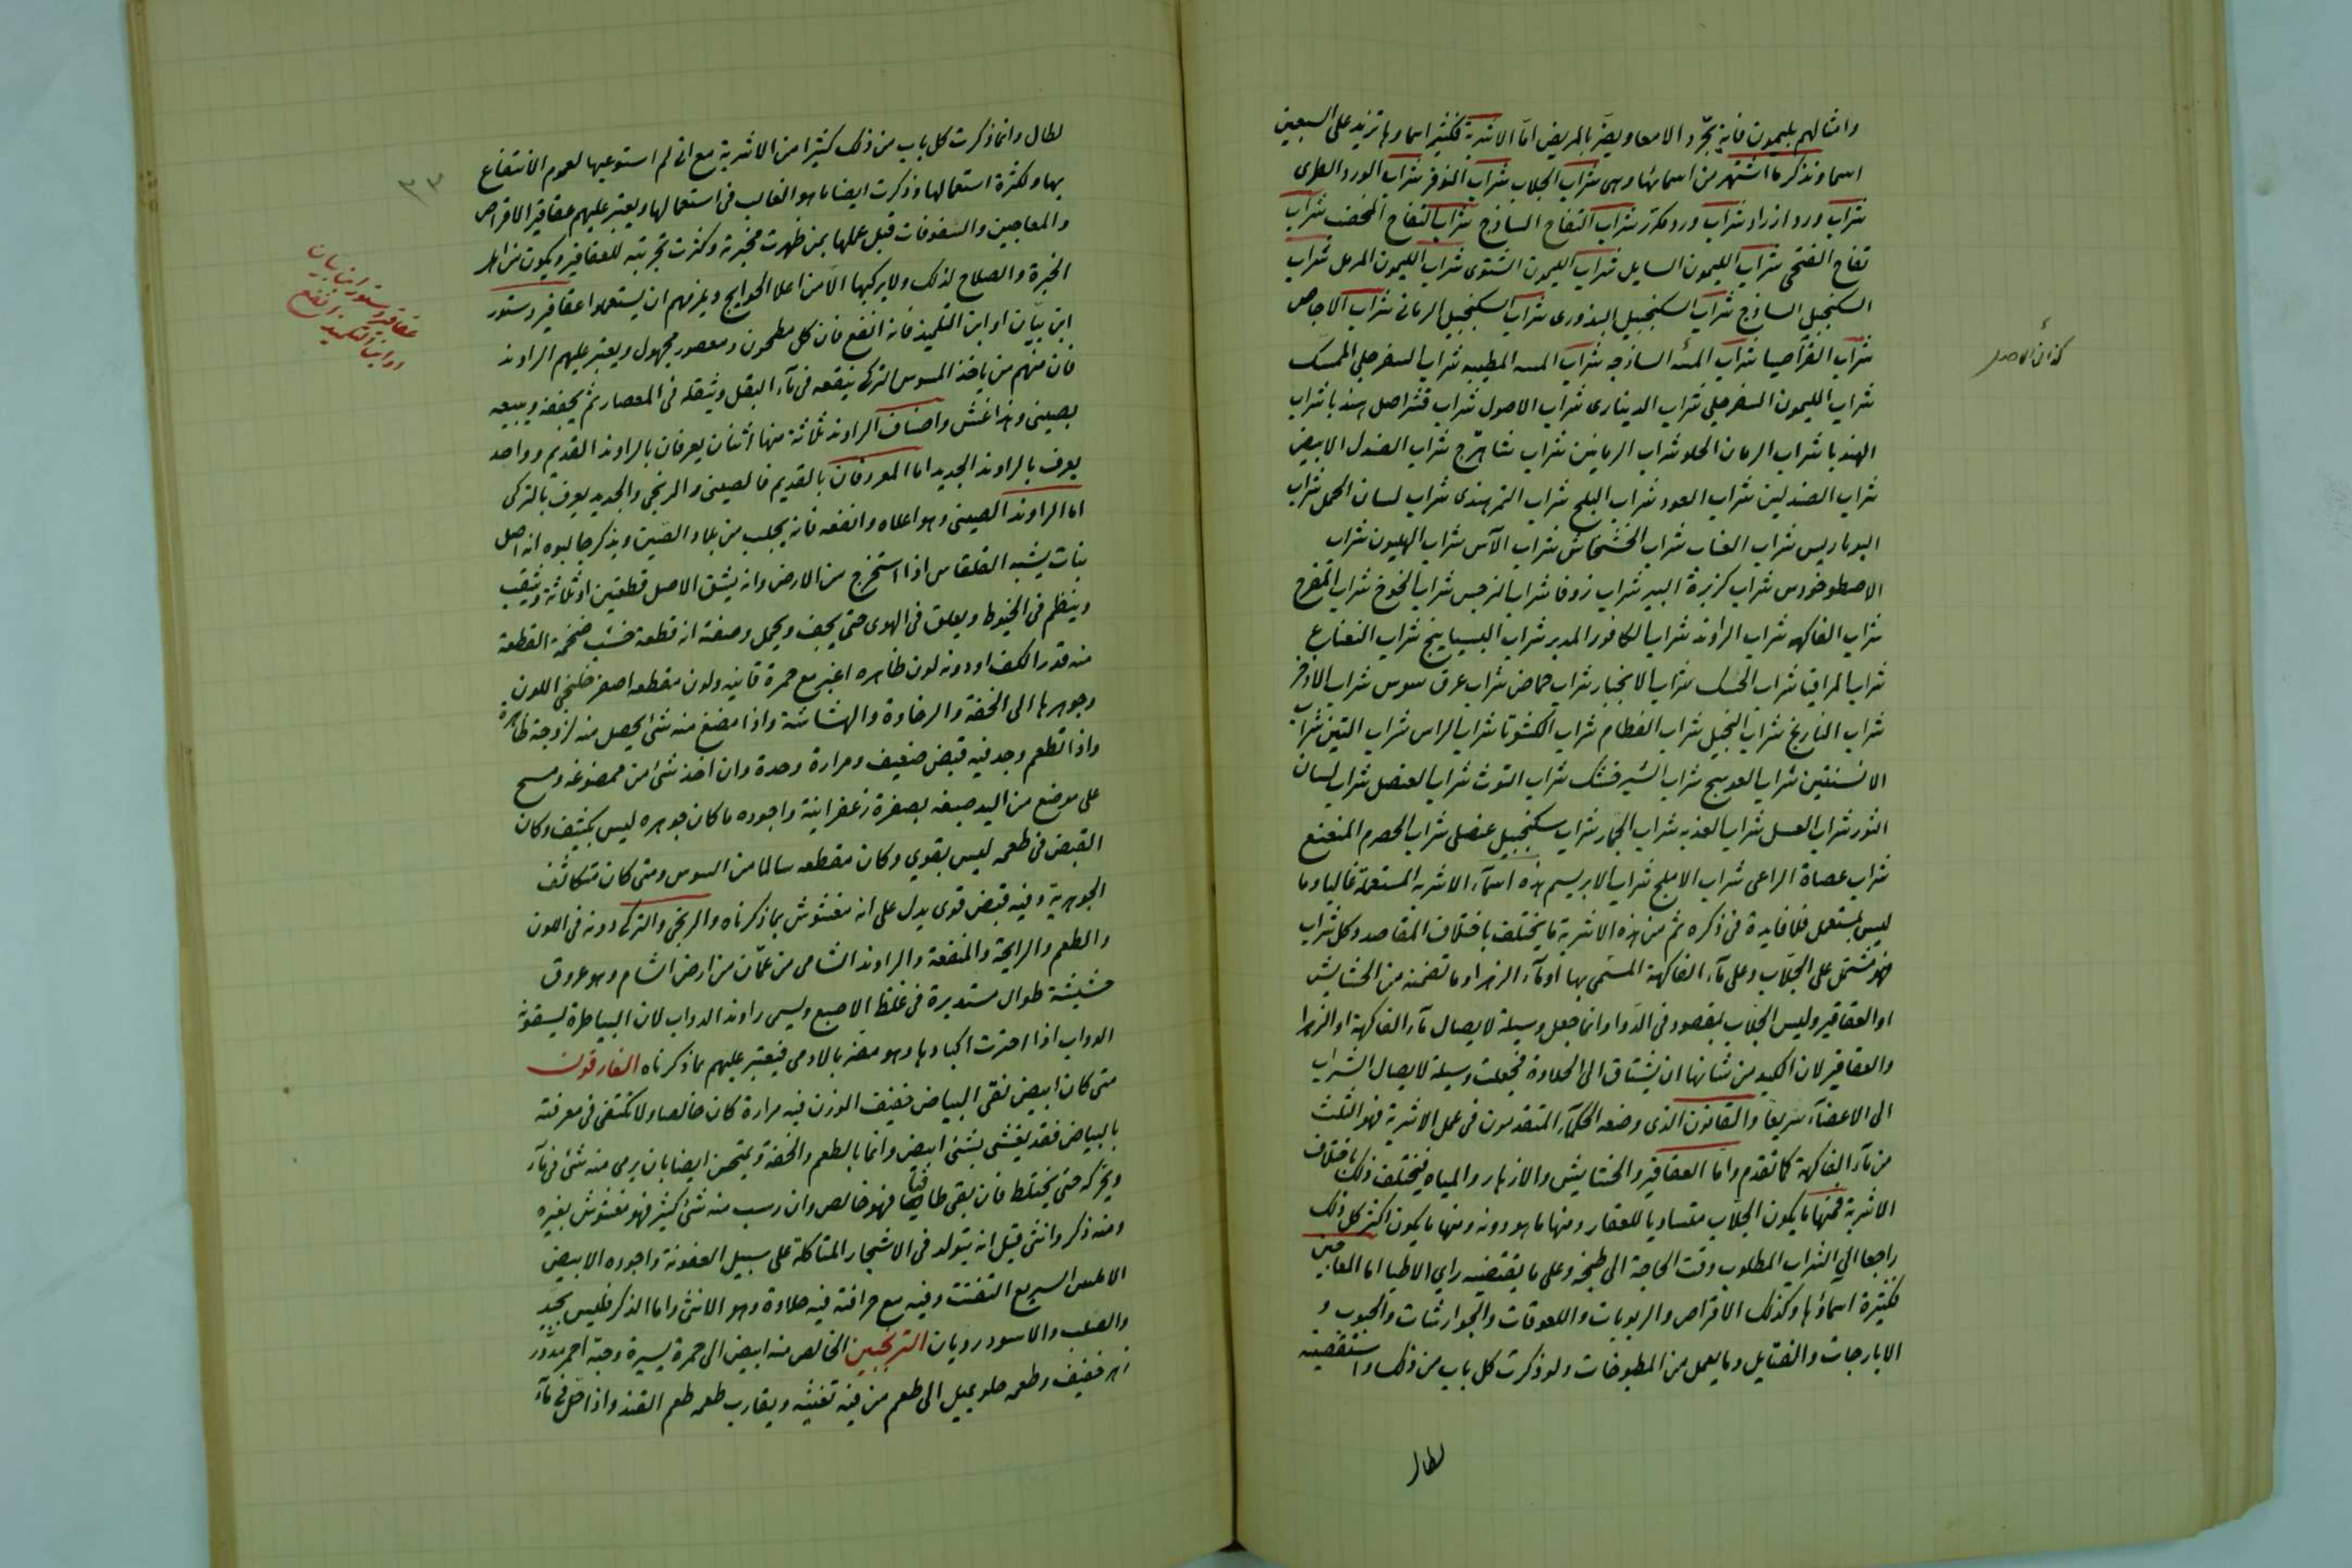 وامثالهم بليمون فانه يجرد الامعا ويضر بالمريض اما الاشربة فكثير اسماوها تزيد على السبعين
اسما ونذكر ما اشتهر من اسمائها وهى شراب الجلاب شراب النوفر شراب الورد الطرى
شراب ورد ازرار شراب ورد مكرر شراب التفاح الساذج شراب التفاح المخضب شراب
تفاح الفتحى شراب الليمون السايل شراب الليمون الشتوى شراب الليمون المرمل شراب
السكنجبيل الساذج شراب السكنجبيل البذورى شراب السكنجبيل الرمانى شراب الاجاص
شراب القراصيا شراب الميه الساذجه شراب الميه المطيبه شراب السفرجلى الممسك
كذا فى الاصل
شراب الليمون السفرجلى شراب الدينارى شراب الاصول شراب قشر اصل هندبا شراب
الهندبا شراب الرمان الحلو شراب الرمانين شراب شاهترج شراب الصندل الابيض
شراب الصندلين شراب العود شراب البلح شراب التمر هندى شراب لسان الحمل شراب
البرباريس شراب العناب شراب الخشخاش شراب الآس شراب الهليون شراب
الاصطوخودس شراب كزبرة البير شراب زوفا شراب النرجس شراب الخوخ شراب المفرح
شراب الفاكهه شراب الراوند شراب الكافور المدبر شراب البسبايج شراب النعناع
شراب المراقيا شراب الخسك شراب الانجبار شراب حماض شراب عرق سوس شراب الاذخر
شراب النارنج شراب النجيل شراب الفطام شراب الكشوتا شراب الراس شراب التين شراب
الافسنتين شراب العوسج شراب الشيرخشك شراب التوت شراب العنصل شراب لسان
الثور شراب العسل شراب العذبه شراب الجمار شراب سكنجبيل عنصلى شراب الحصرم المنعنع
شراب عصاة الراعى شراب الاملج شراب الابريسم هذه اسمآء الاشربه المستعملة غالبا وما
ليس بمستعمل فلا فايدة فى ذكره ثم من هذه الاشربة ما يختلف باختلاف المقاصد وكل شراب
فهو مشتمل على الجلاب وعلى مآء الفاكهة المسمى بها او مآء الزهر او ما تضمنه من الحشايش
او العقاقير وليس الجلاب بمقصود فى الدوا وانما جعل وسيلة لايصال مآء الفاكهة او الزهرا
والعقاقير لان الكبد من شانها ان تشتاق الى الحلاوة فجعلت وسيلة لايصال الشراب
الى الاعضآء سريعا والقانون الذى وضعه الحكمآء المتقدمون فى عمل الاشربة فهو الثلث
من مآء الفاكهة كما تقدم واما العقاقير والحشايش والازهار والمياه فيختلف ذلك باختلاف
الاشربة فمنها ما يكون الجلاب متساويا للعقار ومنها ما هو دونه ومنها ما يكون اكثر كل ذلك
راجعا الى الشراب المطلوب وقت الحاجة الى طبخه وعلى ما يقتضيه راى الاطبا اما المعاجين
فكثيرة اسماؤها وكذلك الاقراص والربوبات واللعوقات والجوارشات والحبوب و
الايارجات والفتايل وما يعمل من المطبوخات ولو ذكرت كل باب من ذلك واستقصيته
لطال
٣٣
لطال وانما ذكرت كل باب من ذلك كثيرا من الاشربة مع انى لم استوعبها لعموم الانتفاع
بها ولكثرة استعمالها وذكرت ايضا ما هو الغالب فى استعمالها ويعتبر عليهم عقاقير الاقراص
والمعاجين والسفوفات قبل عملها بمن ظهرت مخبرته وكثرت تجربته للعقاقير ويكون من اهل
الخبرة والصلاح لذلك ولا يركبها الا من اعلا الحوايج ويلزمهم ان يستعملوا عقاقير دستور
ابن بيان او ابن التلميذ فانه انفع فان كل مطحون ومعصور مجهول ويعتبر عليهم الراوند
عقاقير دستور ابن بيان
وابن التلميذ انفع
فان منهم من ياخذ السوس التركى ينقعه فى مآء البقل ويثقله فى المعصار ثم يجففه ويبيعه
بصينى وهذا غش واصناف الراوند ثلاثة منها اثنان يعرفان بالراوند القديم وواحد
يعرف بالراوند الجديد اما المعروفان بالقديم فالصينى والزنجى والجديد يعرف بالتركى
اما الراوند الصينى وهو اعلاه وانفعه فانه يجلب من بلاد الصين ويذكر جالبوه انه اصل
نبات يشبه القلقاس اذا استخرج من الارض وانه يشق الاصل قطعتين او ثلاثة ويثقب
وينظم فى الخيوط ويعلق فى الهوى حتى يجف ويحمل وصفته انه قطعة خشب ضخمة القطعة
منه قدر الكف او دونه لون ظاهره اغبر مع حمرة قانيه ولون مقطعه اصفر خلنجى اللون
وجوهرها الى الخفة والرخاوة والهشاشة واذا مضغ منه شئ يحصل منه لزوجة ظاهرة
واذا تطعم وجد فيه قبض ضعيف ومرارة وحدة وان اخذ شئ من ممضوغه ومسح
على موضع من اليد صبغه بصفرة زعفرانية واجوده ما كان جوهره ليس بكثيف وكان
القبض فى طعمه ليس بقوي وكان مقطعه سالما من السوس ومتى كان متكاثف
الجوهرية وفيه قبض قوى يدل على انه مغشوش بما ذكرناه والزنجى والتركى دونه فى اللون
والطعم والرايحة والمنفعة والراوند الشامى من عمان من ارض الشام وهو عروق
خشبية طوال مستديرة فى غلظ الاصبع ويسمى راوند الدواب لان البياطرة يسقونه
الدواب اذا احترت اكبادها وهو مضر بالادمى فيعتبر عليهم ما ذكرناه الغارقون
متى كان ابيض نقى البياض خفيف الوزن فيه مرارة كان خالصا ولا تكتفى فى معرفته
بالبياض فقد يغشى بشئ ابيض وانما بالطعم والخفة ويمتحن ايضا بان يرمى منه شئ فى مآء
ويحركه حتى يختلط فان بقى طافيا فهو خالص وان رسب منه شئ كثير فهو مغشوش بغيره
ومنه ذكر وانثى قيل انه يتولد فى الاشجار المتاكلة على سبيل العفونة واجوده الابيض
الاملس السريع التفتت وفيه مع حرافته فيه حلاوة وهو الانثى واما الذكر فليس بجيد
والصلب والاسود رديان الترنجبين الخالص منه ابيض الى حمرة يسيرة وحبه احمر مدور
خفيف وطعمه حلو يميل الى طعم من فيه تغثيه ويقارب طعمه طعم القند واذا حل فى مآء